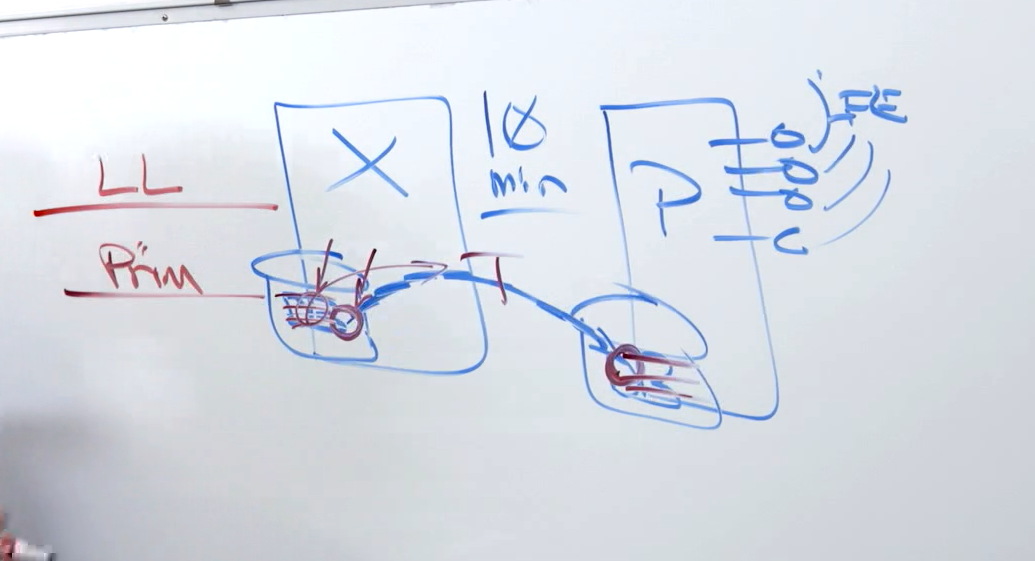 LL
Prim
X
10
min
P
FE
T